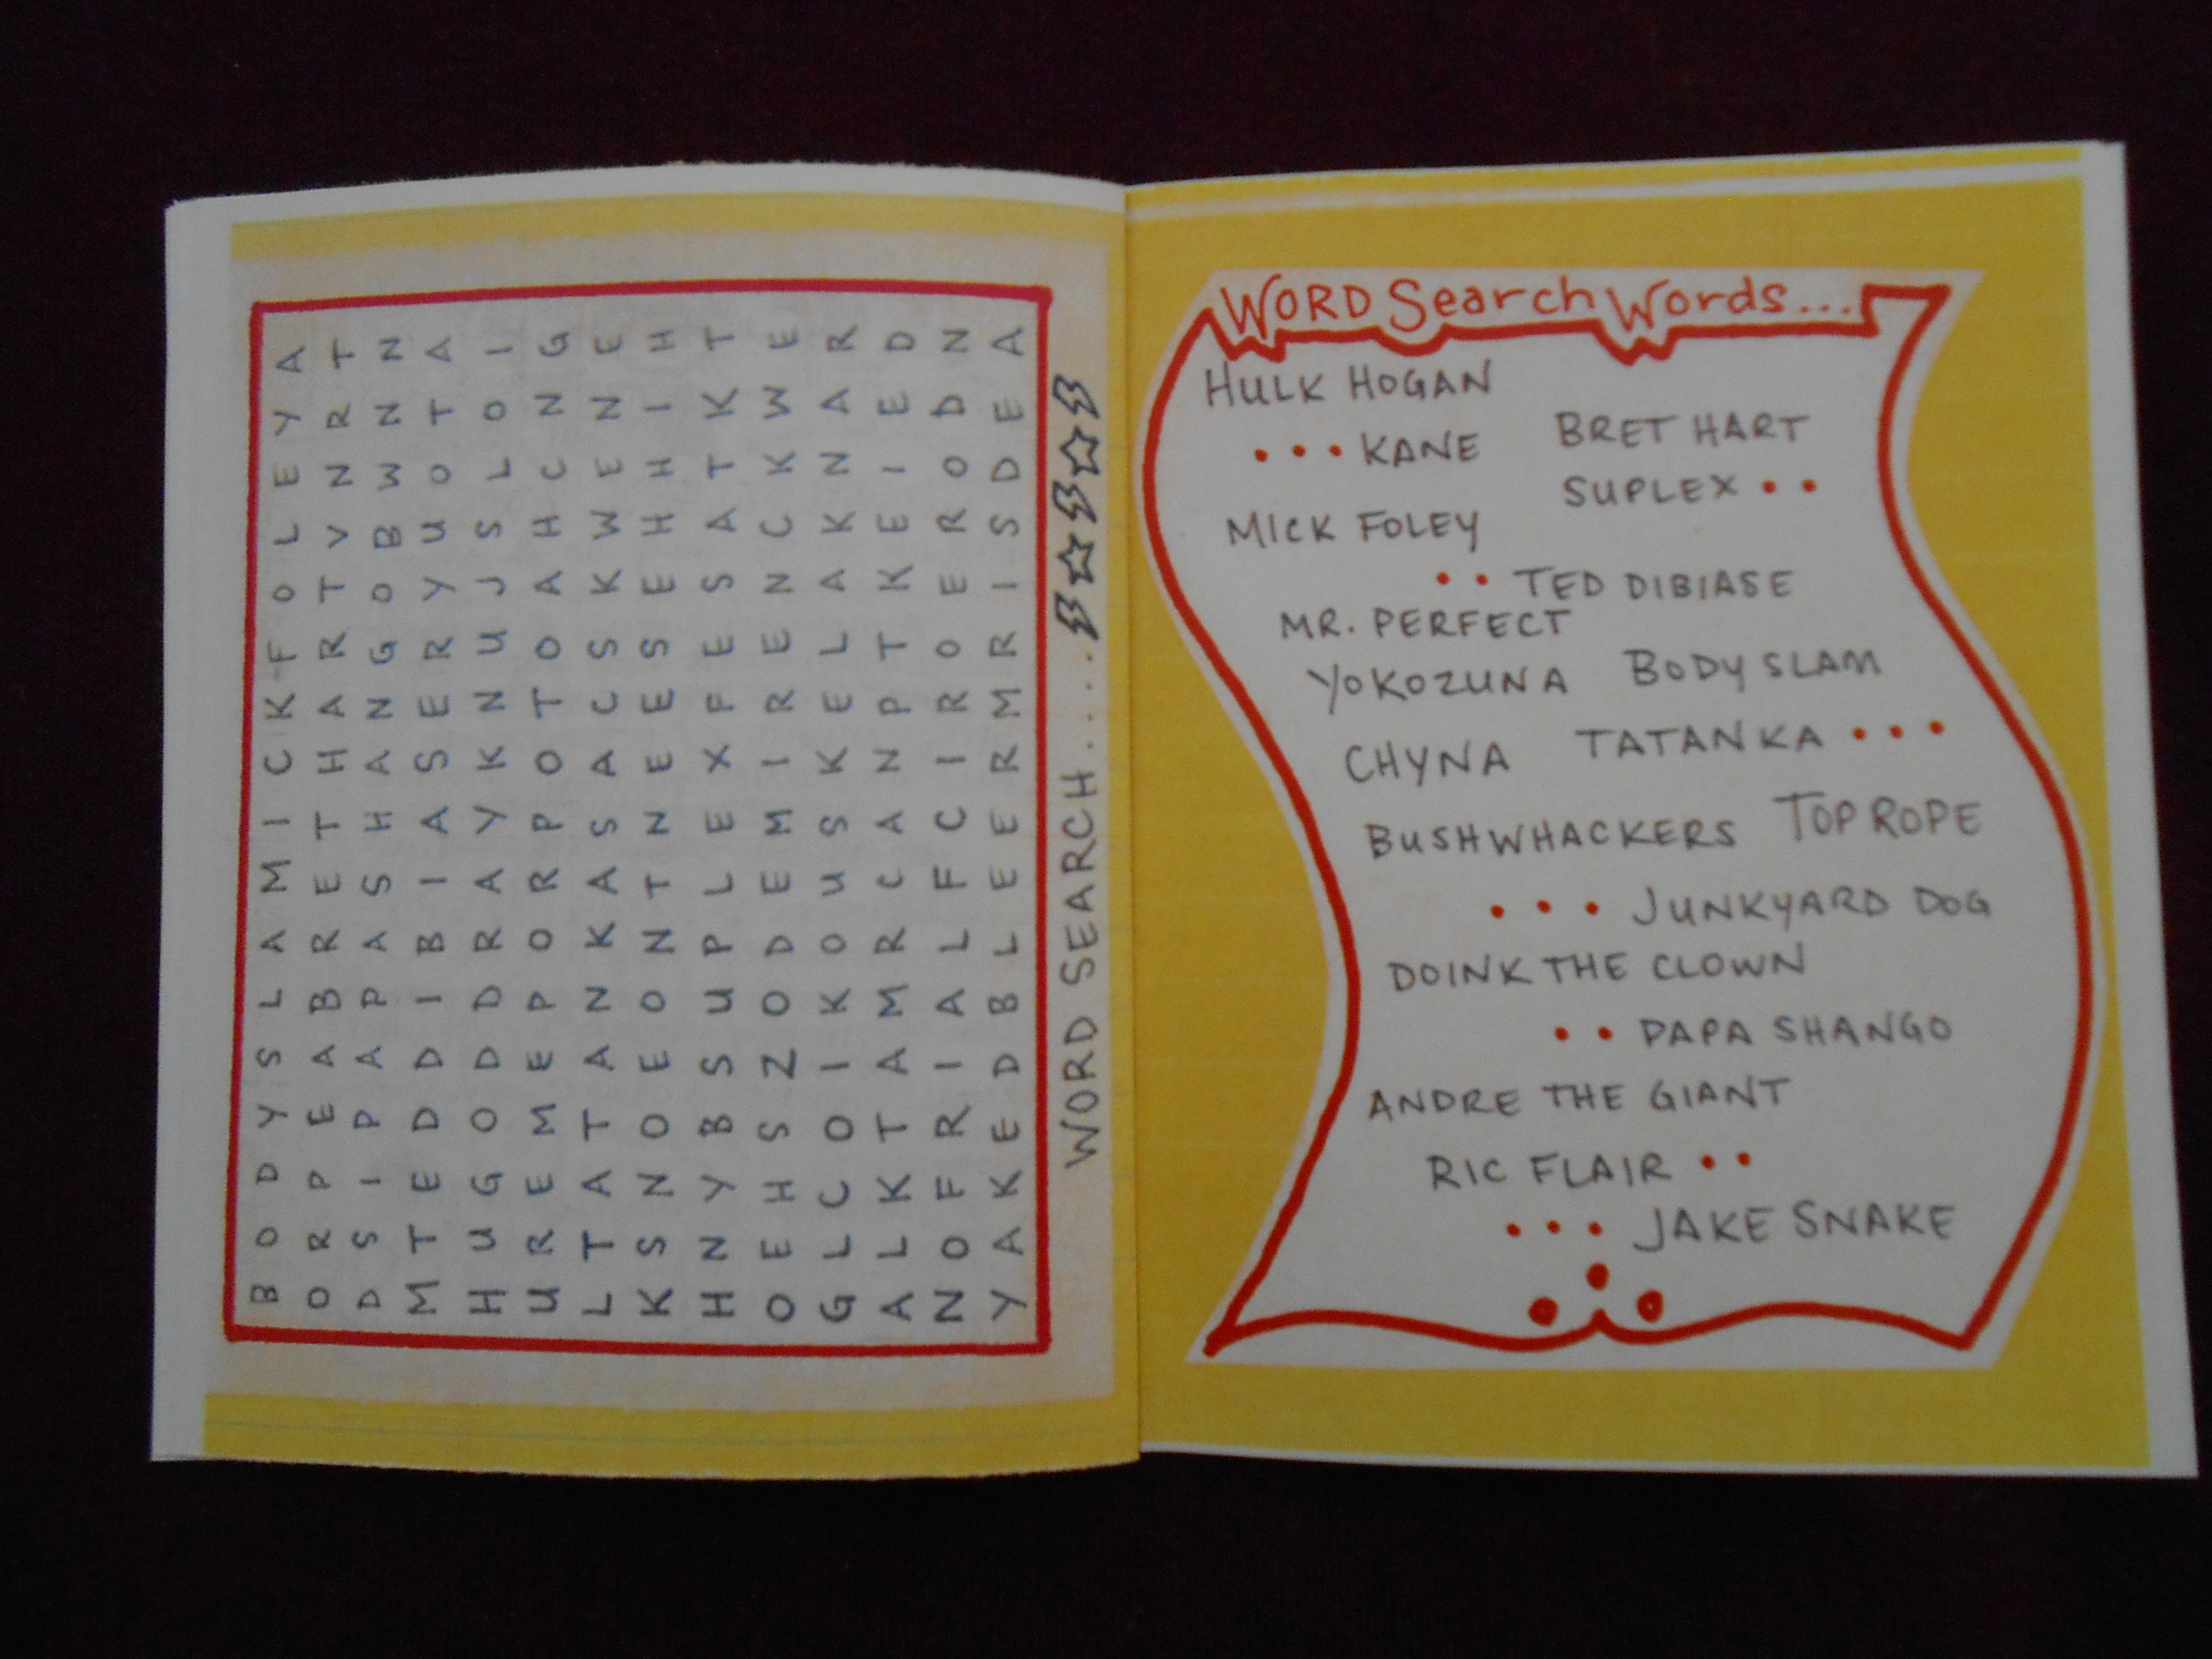 B O D Y S L A M I C K F O L E Y A
O R P E A B R E T H A R T V N R T
D S I P A P A S H A N G O B W N N
M T E D D I B I A S E R Y U O T A
H U G O D D R A Y K N U J S L O I
U R E M E P O R P O T O A H C N G
L T A T A N K A S A C S K W E N E
K S N O E O N T N E E S E H H I H
H N Y B S U P L E X F E S A T K T
O E H S Z O D E M I R E N C K W E
G L C O I K O U S K E L A K N A R
A L K T A M R C A N P T K E I E D
N O F R I A L F C I R O E R O D N
Y A K E D B L E E R M R I S D E A
WORD SEARCH.....
WORD Search Words...
HULK HOGAN
...KANE BRET HART
SUPLEX ..
MICK FOLEY
.. TED DIBIASE
MR. PERFECT
YOKOZUNA BODY SLAM
CHYNA TATANKA ...
BUSHWHACKERS TOP ROPE
... JUNKYARD DOG
DOINK THE CLOWN
.. PAPA SHANGO
ANDRE THE GIANT
RIC FLAIR ..
... JAKE SNAKE